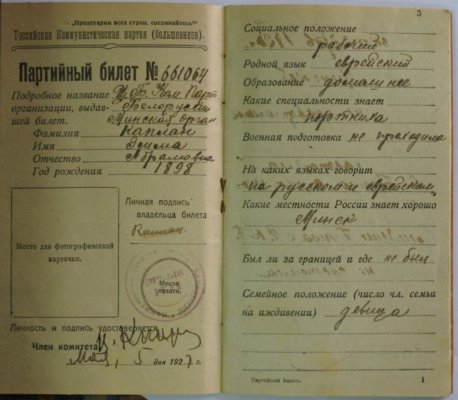 „Пролетарии всех стран, соединяйтесь!“
Российская Коммунистическая партия (большевиков).
Партийный билет № 661064
Подробное название Ц.Б. Ком. Парт.
организации, выдав- Белоруссии
шей билет. Минская орган.
Фамилия Каплан
Имя
Отчество Абрамовна
Год рождения 1898
Личная подпись
владельца билета
Каплан
Место для фотографической
карточки.
Место
печати.
Личность и подпись удостоверяется
Член комитета
Мая, 5 дня 1927 г.
3
Социальное положение
рабочий
Родной язык еврейский
Образование домашнее
Какие специальности знает
портниха
Военная подготовка не проходила
На каких языках говорит
на русском и еврейском
Какие местности России знает хорошо
Минск
Был ли за границей и где не был
Семейное положение (число чл. семьи
на иждивении) девица
Партийный билет.
1